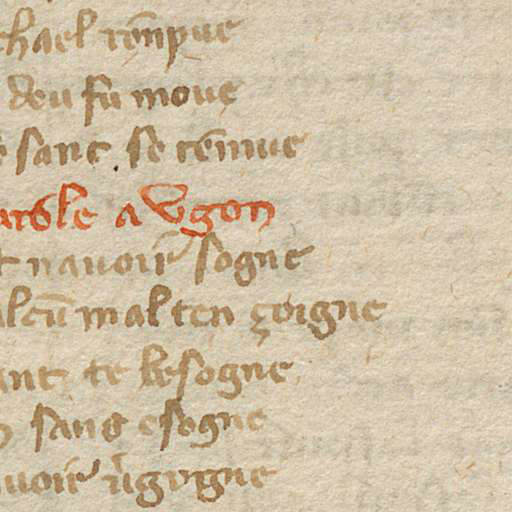 chael re͞npue
deu fu moue
sanc . se re͞mue
arole a vgon
t nauoir sogne
alcu͞ mal ten çoigne
ant te besogne
sans esogne
uoir u͛gogne